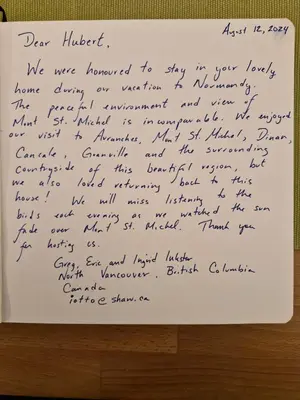 August 12, 2024
Dear Hubert,
We were honoured to stay in your lovely
home during our vacation to Normandy.
The peaceful environment and view of
Mont St. Michel is incomparable. We enjoyed
our visit to Avranches, Mont St. Michel, Dinan,
Cancale, Granville and the surrounding
countryside of this beautiful region, but
we also loved returning back to this
house! We will miss listening to the
birds each evening as we watched the sun
fade over Mont St. Michel. Thank you
for hosting us.
Greg, Eric and Ingrid
North Vancouver, British Columbia
Canada
iotto@shaw.ca